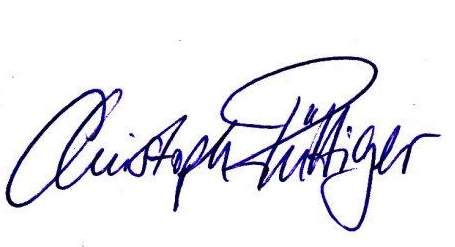 Christoph Püttiger